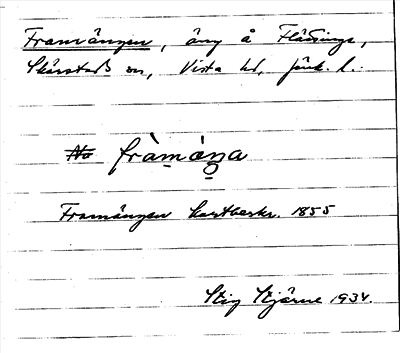 Framängen, äng å Flättinge,
Skärstads sn, Vista hd, Jönk. l.
No fràmáŋa
Framängen kartbeskr. 1855
Stig Stjärne 1934.